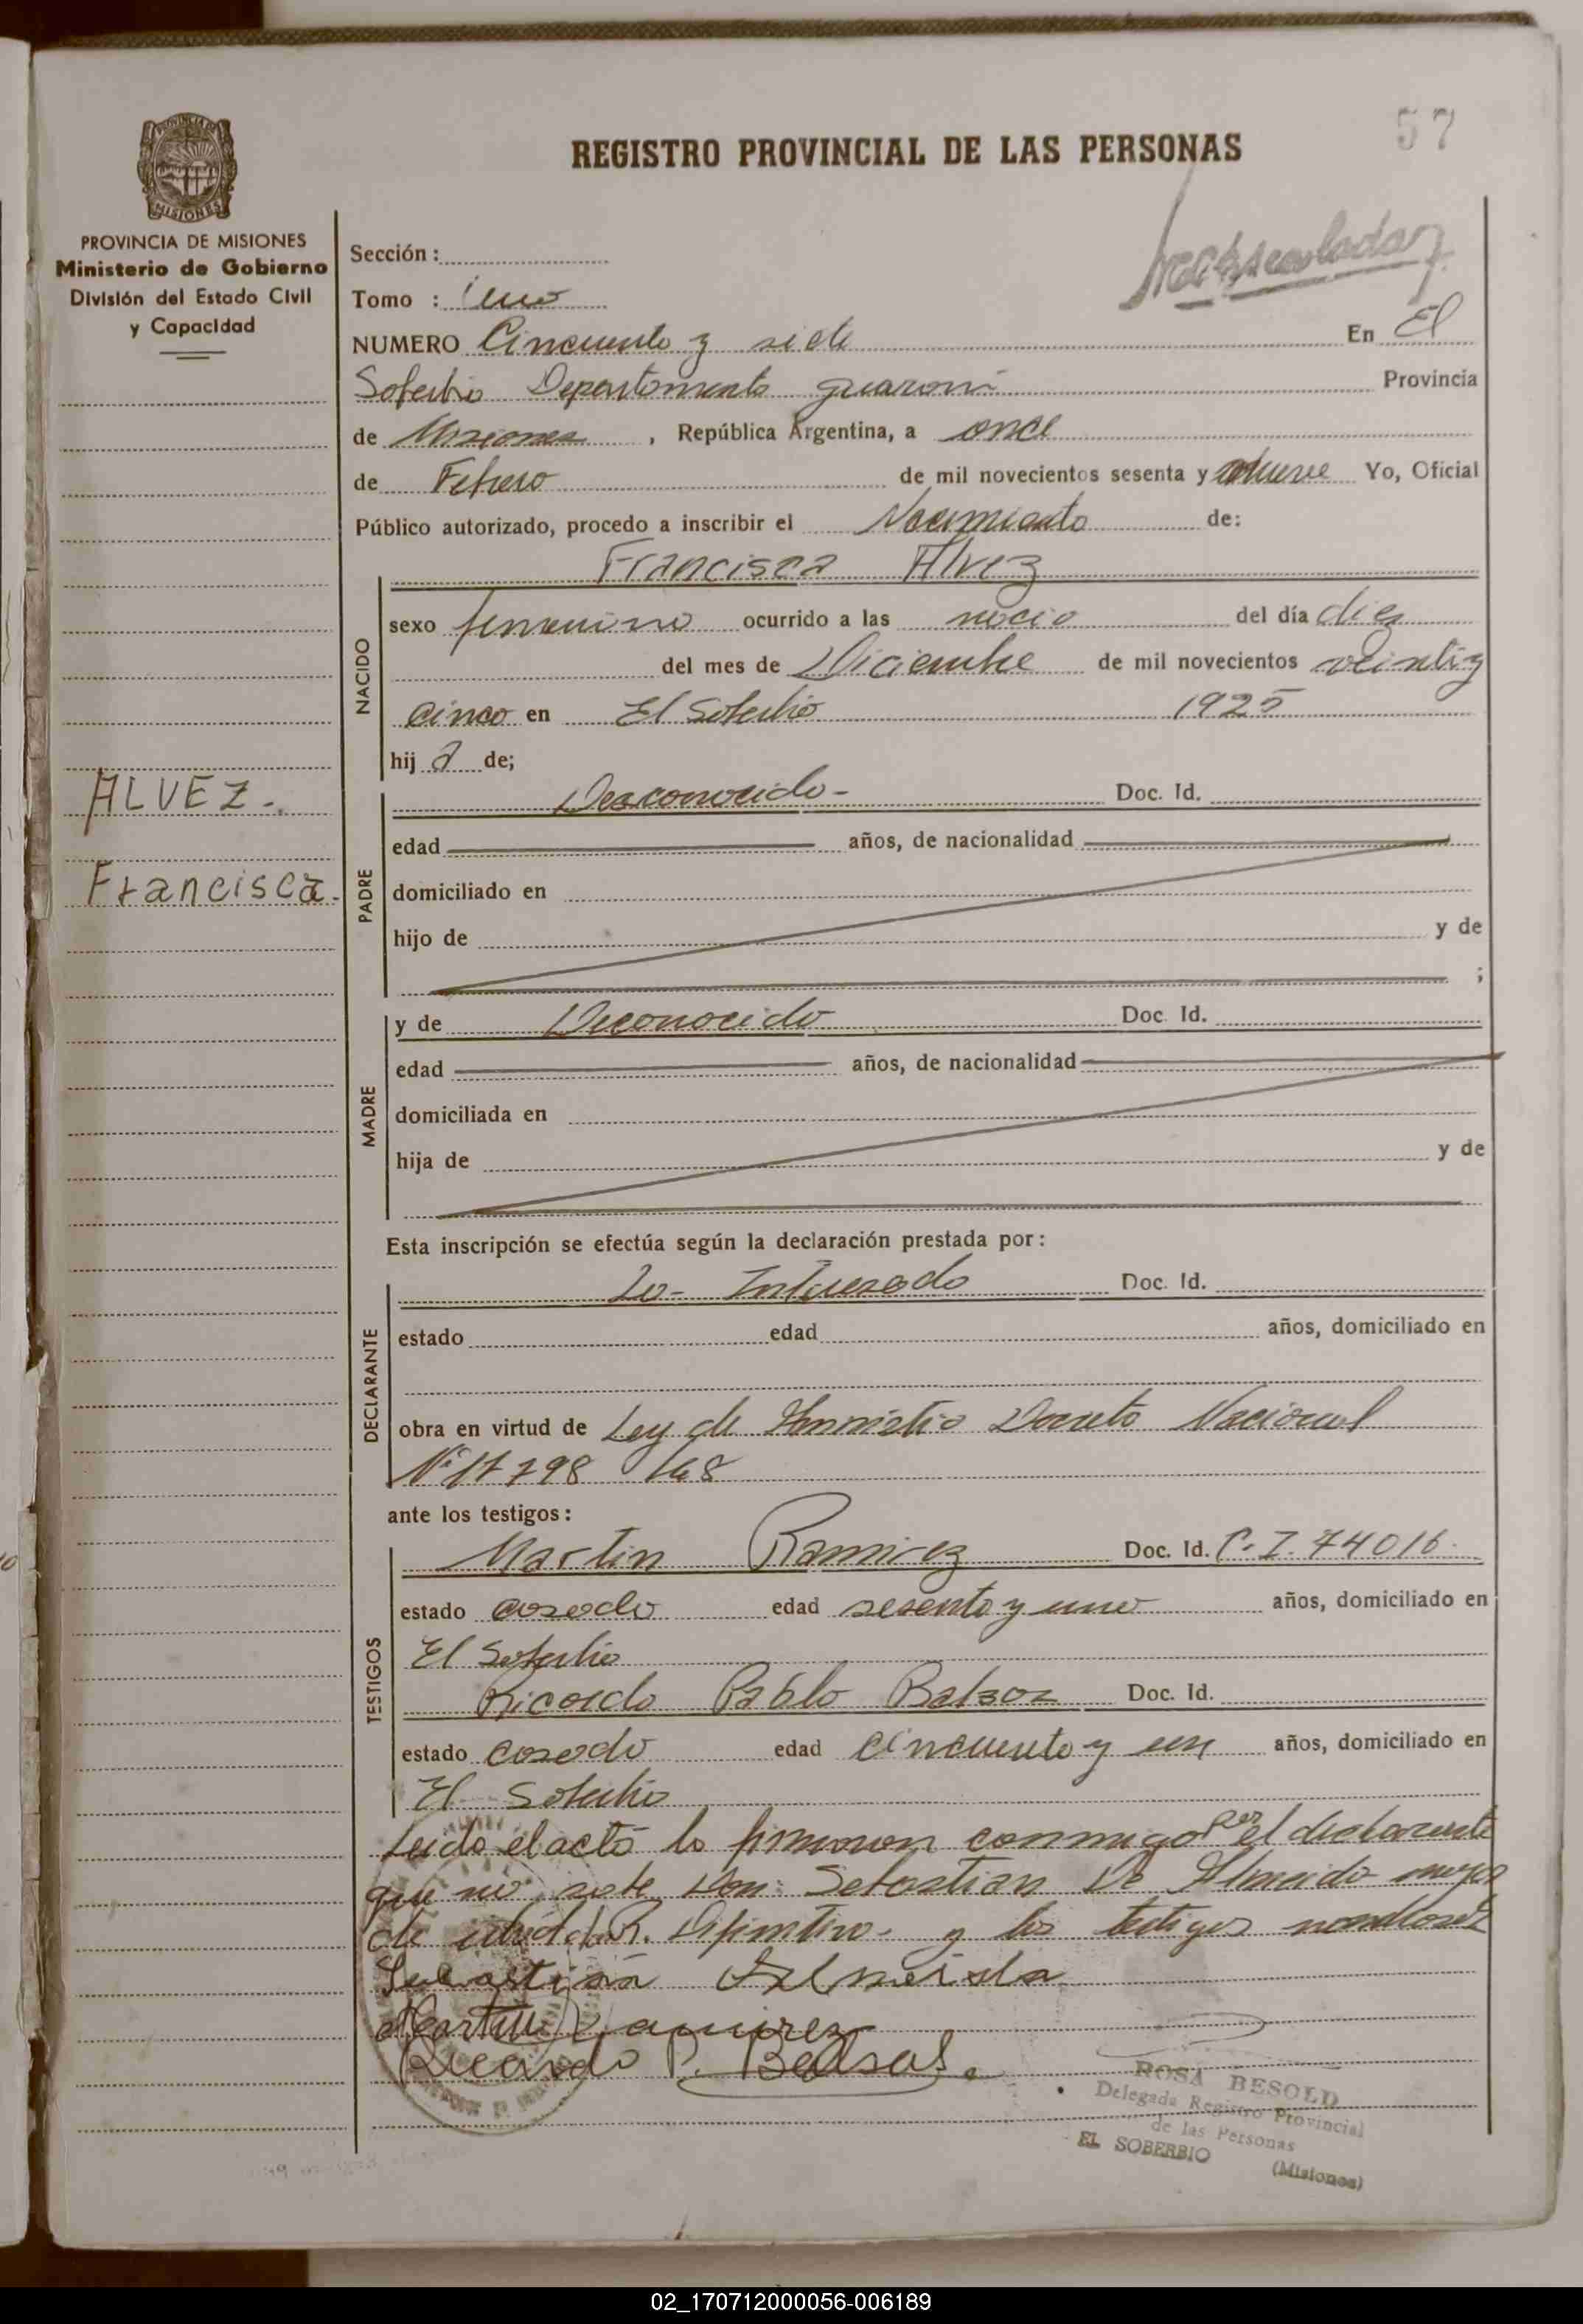 57
REGISTRO PROVINCIAL DE LAS PERSONAS
PROVINCIA DE MISIONES
Ministerio de Gobierno
División del Estado Civil
y Capacidad
ALVEZ.
Francisca.
Sección:
Tomo :
NUMERO Cincuenta y siete En El
Soberbio Departamento Guaraní Provincia
de Misiones, República Argentina, a once
de Febrero de mil novecientos sesenta y nueve Yo, Oficial
Público autorizado, procedo a inscribir el Nacimiento de:
Francisca Alvez
NACIDO
sexo femenino ocurrido a las del día diez
del mes de Diciembre de mil novecientos veinti y
cinco en El Soberbio 1925
hij a de;
PADRE
Desconocido- Doc. Id.
edad años, de nacionalidad
domiciliado en
hijo de y de
;
MADRE
y de Deconocido Doc. Id.
edad años, de nacionalidad
domiciliada en
hija de y de
Esta inscripción se efectúa según la declaración prestada por:
DECLARANTE
La- Interesada Doc. Id.
estado edad años, domiciliado en
obra en virtud de Ley de Amnistia Decreto Nacional
Nº 17798 /68
ante los testigos:
TESTIGOS
Martin Ramirez Doc. Id. C.I. 74016.
estado casado edad sesenta y uno años, domiciliado en
El Soberbio
Ricardo Pablo Balsaz Doc. Id.
estado casado edad cincuenta y un años, domiciliado en
El Soberbio
Leida el acta la firmaron conmigo Por el declarante
que no sabe Don: Sebastian De Almeida mayor
de y los testigos
Sebastian Almeida
Martin Ramirez
Ricardo P. Balsas.
ROSA BESOLD
Delegada Registro Provincial
de las Personas
EL SOBERBIO (Misiones)
02_170712000056-006189